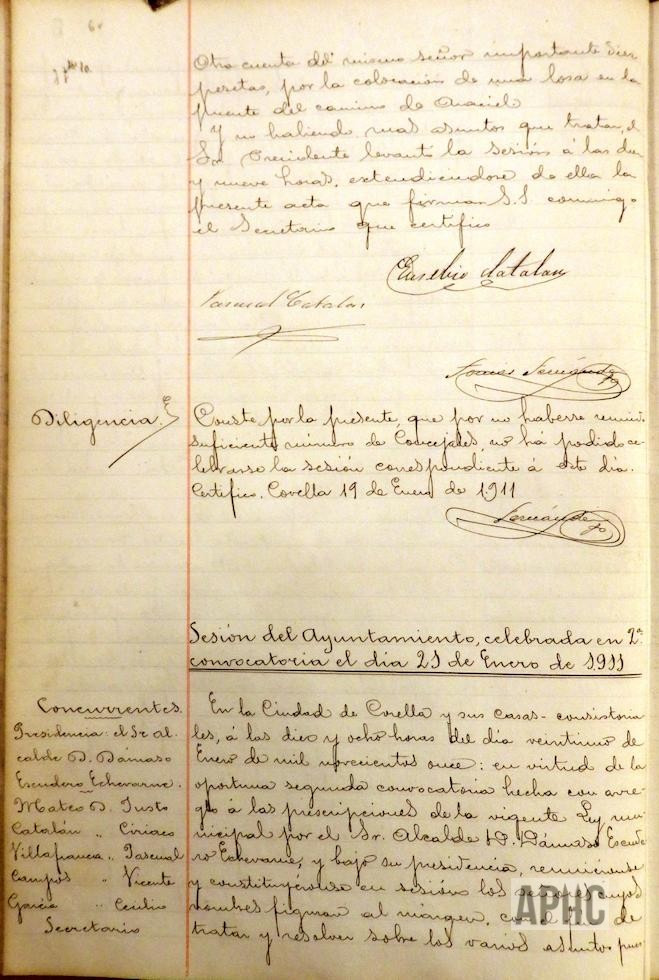 Otra cuenta del mismo señor importante diez
pesetas, por la colocación de una losa en la
puente del camino de
Y no habiendo mas asuntos que tratar, el
Sr. Presidente levantó la sesión á las diez
y nueve horas, extendiendose de ella la
presente acta que firman S.S. conmigo
el Secretario que certifico
Eusebio Catalan
Pascual Catalan
Fernández
Diligencia.
Conste por la presente, que por no haberse reunido
suficiente número de Concejales, no ha podido ce-
lebrarse la sesión correspondiente á este dia.
Certifico. Corella 19 de Enero de 1911
Fernández
Sesión del Ayuntamiento, celebrada en 2ª
convocatoria el dia 21 de Enero de 1911
Concurrentes.
Presidencia: el Sr. Al-
calde D. Dámaso
Escudero Echevarne.
Mateo D. Justo
Catalán " Ciriaco
Villafranca " Pascual
Campos " Vicente
Garcia "
Secretario
En la Ciudad de Corella y sus casas-consistoria
les, á las diez y ocho horas del día veintiuno de
Enero de mil novecientos once: en virtud de la
oportuna segunda convocatoria hecha con arre-
glo á las prescripciones de la vigente Ley mu-
nicipal por el Sr. Alcalde D. Dámaso Escude
ro Echevarne, y bajo su presidencia, reuniéronse
y constituyéronse en sesión los señores cuyos
nombres figuran al márgen, con el fin de
tratar y resolver sobre los varios asuntos pues
APHC